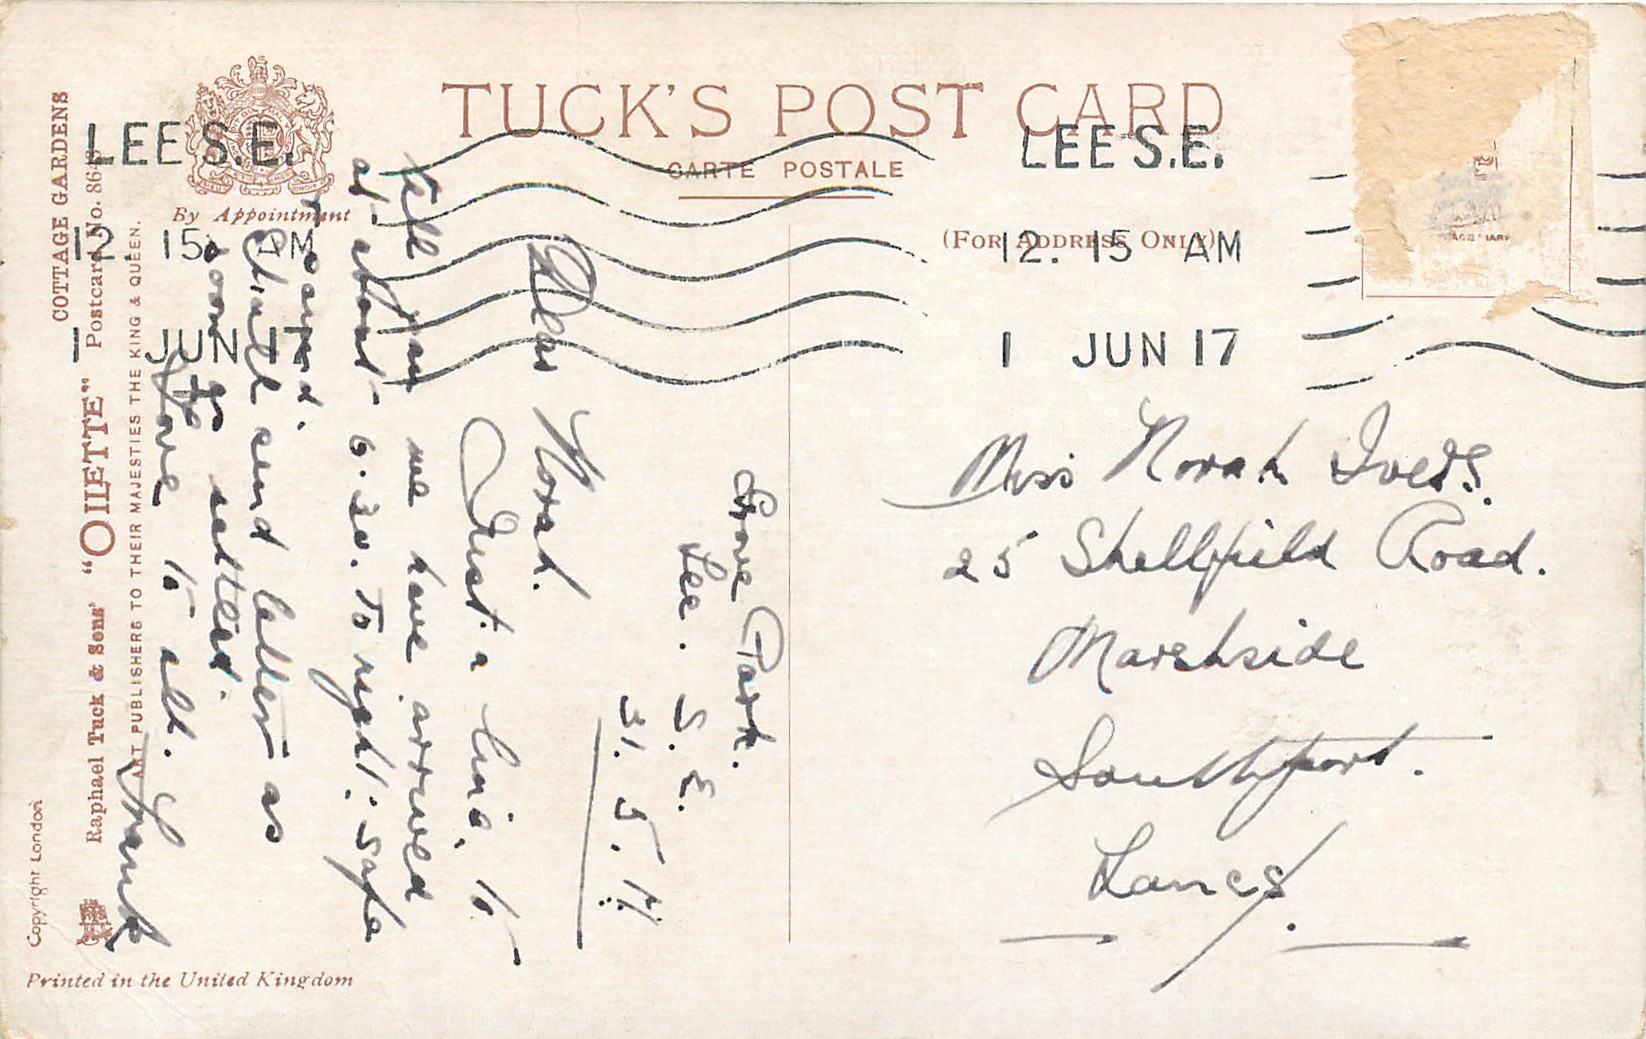 TUCK'S POST CARD
CARTE POSTALE
(FOR ADDRESS ONLY)
By Appointment
COTTAGE GARDENS
Raphael Tuck & Sons' "OILETTE" Postcard No.
ART PUBLISHERS TO THEIR MAJESTIES THE KING & QUEEN.
Copyright London
Printed in the United Kingdom
LEE S.E.
12. 15 AM
1 JUN 17
LEE S.E.
12. 15 AM
1 JUN 17
Grove Park.
Lee. S. E.
31. 5. 17.
Dear Norah.
Just a line, to
tell you we have arrived
at about 6.30. To night. safe
&
Shall send letter as
soon as settled.
Love to all.
Frank
Miss Norah
25 Shellfield Road.
Marshside
Southport.
Lancs.